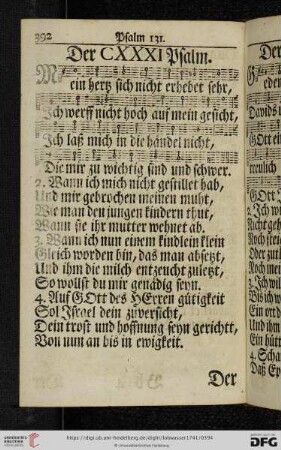 392 Psalm 131.
Der CXXXI Psalm.
Mein hertz sich nicht erhebet sehr,
Ich werff nicht hoch auf mein gesicht,
Ich laß mich in die händel nicht,
Die mir zu wichtig sind und schwer.
2. Wann ich mich nicht gestillet hab,
Und mir gebrochen meinen muht,
Wie man den jungen kindern thut,
Wann sie ihr mutter wehnet ab.
3. Wann ich nun einem kindlein klein
Gleich worden bin, das man absezt,
Und ihm die milch entzeucht zulezt,
So wollst du mir genädig seyn.
4. Auf GOtt des HErren gütigkeit
Sol Israel dein zuversicht,
Dein trost und hoffnung seyn gericht,
Von nun an bis in ewigkeit.
Der
Der
Davids
GOtt
GOtt
2. Ich
3. Ich
4. Scha
http://digi.ub.uni-heidelberg.de/diglit/lobwasser1741/0394
© Universitätsbibliothek Heidelberg
gefördert durch die
DFG